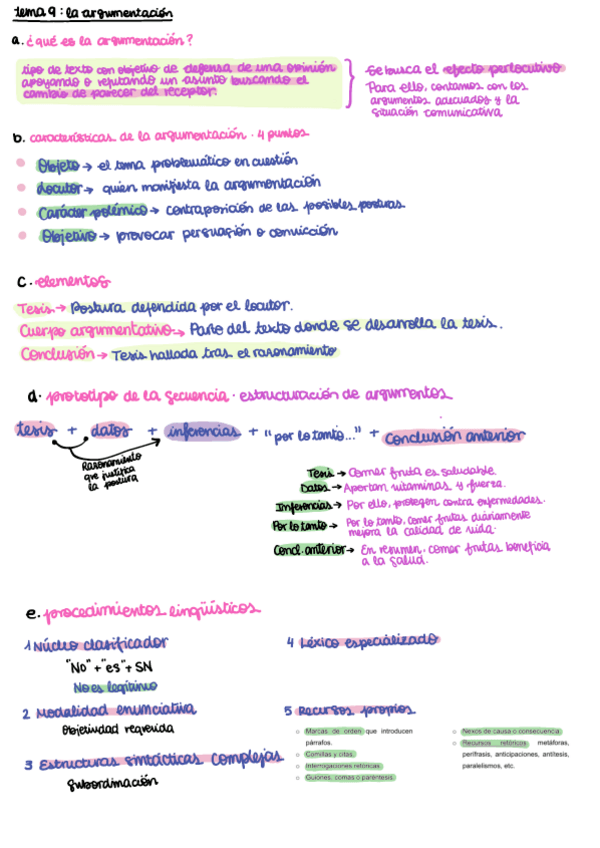 tema 9: la argumentación
a. ¿qué es la argumentación?
tipo de texto con objetivo de defensa de una opinión
apoyando o refutando un asunto buscando el
cambio de parecer del receptor.
Se busca el efecto perlocutivo
Para ello, contamos con los
argumentos adecuados y la
situación comunicativa
b. características de la argumentación · 4 puntos
Objeto → el tema problemático en cuestión
Locutor → quien manifiesta la argumentación
Carácter polémico → contraposición de las posibles posturas
Objetivo → provocar persuasión o convicción
c. elementos
Tesis → Postura defendida por el locutor.
Cuerpo argumentativo → Parte del texto donde se desarrolla la tesis.
Conclusión → Tesis hallada tras el razonamiento
d. prototipo de la secuencia · estructuración de argumentos
tesis + datos + inferencias + "por lo tanto..." + conclusión anterior
Razonamiento
que justifica
la postura
Tesis → Comer fruta es saludable.
Datos → Aportan vitaminas y fuerza.
Inferencias → Por ello, protegen contra enfermedades.
Por lo tanto → Por lo tanto, comer frutas diariamente
mejora la calidad de vida.
Concl. anterior → En resumen, comer frutas beneficia
a la salud.
e. procedimientos lingüísticos
1 Núcleo clasificador
"No" + "es" + SN
No es legítimo
2 Modalidad enunciativa
Objetividad requerida
3 Estructuras sintácticas complejas
Subordinación
4 Léxico especializado
5 Recursos propios
Marcas de orden que introducen
párrafos.
Comillas y citas.
Interrogaciones retóricas.
Guiones, comas o paréntesis.
Nexos de causa o consecuencia.
Recursos retóricos: metáforas,
perífrasis, anticipaciones, antítesis,
paralelismos, etc.